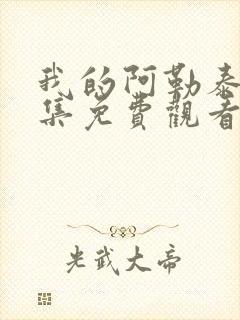 我的阿勒泰
集免費觀看
光武大帝